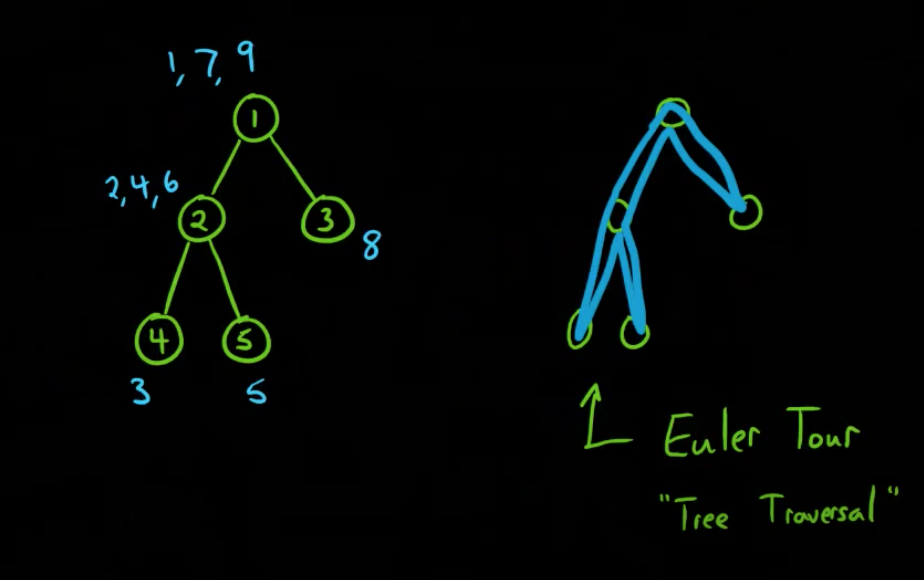 1, 7, 9
1
2, 4, 6
2
3
8
4
5
3
5
Euler Tour
"Tree Traversal"